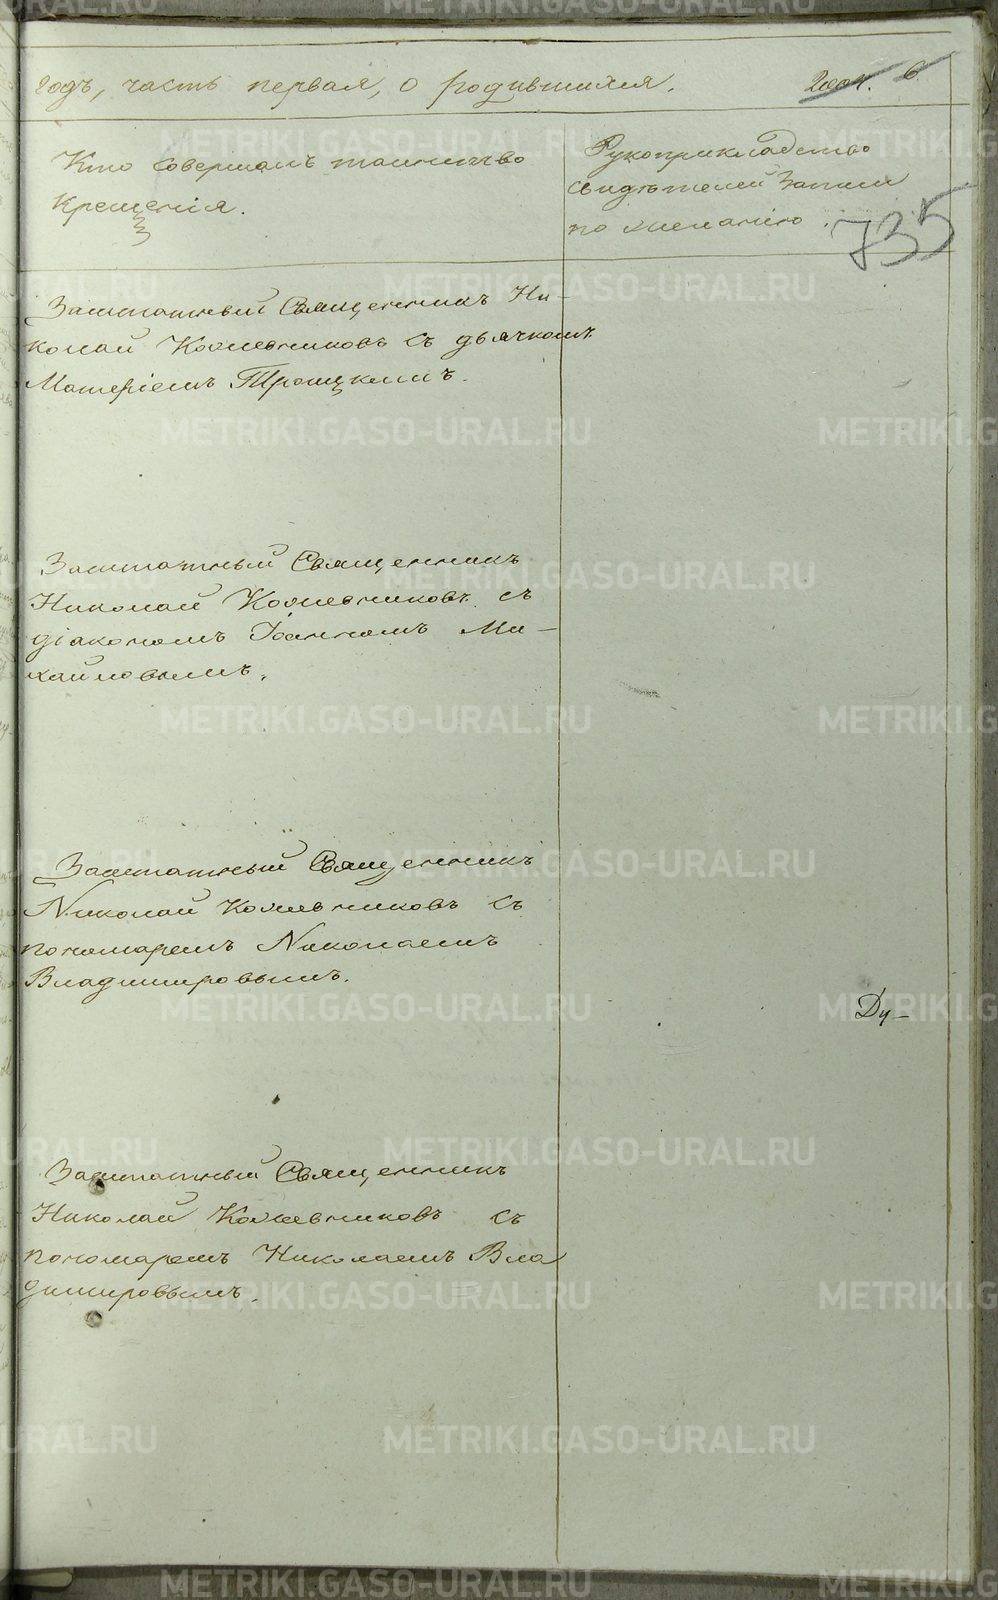 годъ, часть первая, о родившихся.
6
Кто совершалъ таинство
Крещенія.
Рукоприкладство
свидѣтелей записи
по желанію.
735
Заштатный Священникъ Ни-
колай Кожевниковъ съ дьячкомъ
Матѳріемъ Троицкимъ.
Заштатный Священникъ
Николай Кожевниковъ съ
діакономъ Іоанномъ Ми-
хайловымъ.
Заштатный Священникъ
Николай Кожевниковъ съ
пономаремъ Николаемъ
Владимировымъ.
Ду-
Заштатный Священникъ
Николай Кожевниковъ съ
пономаремъ Николаемъ Вла
димировымъ.
METRIKI.GASO-URAL.RU